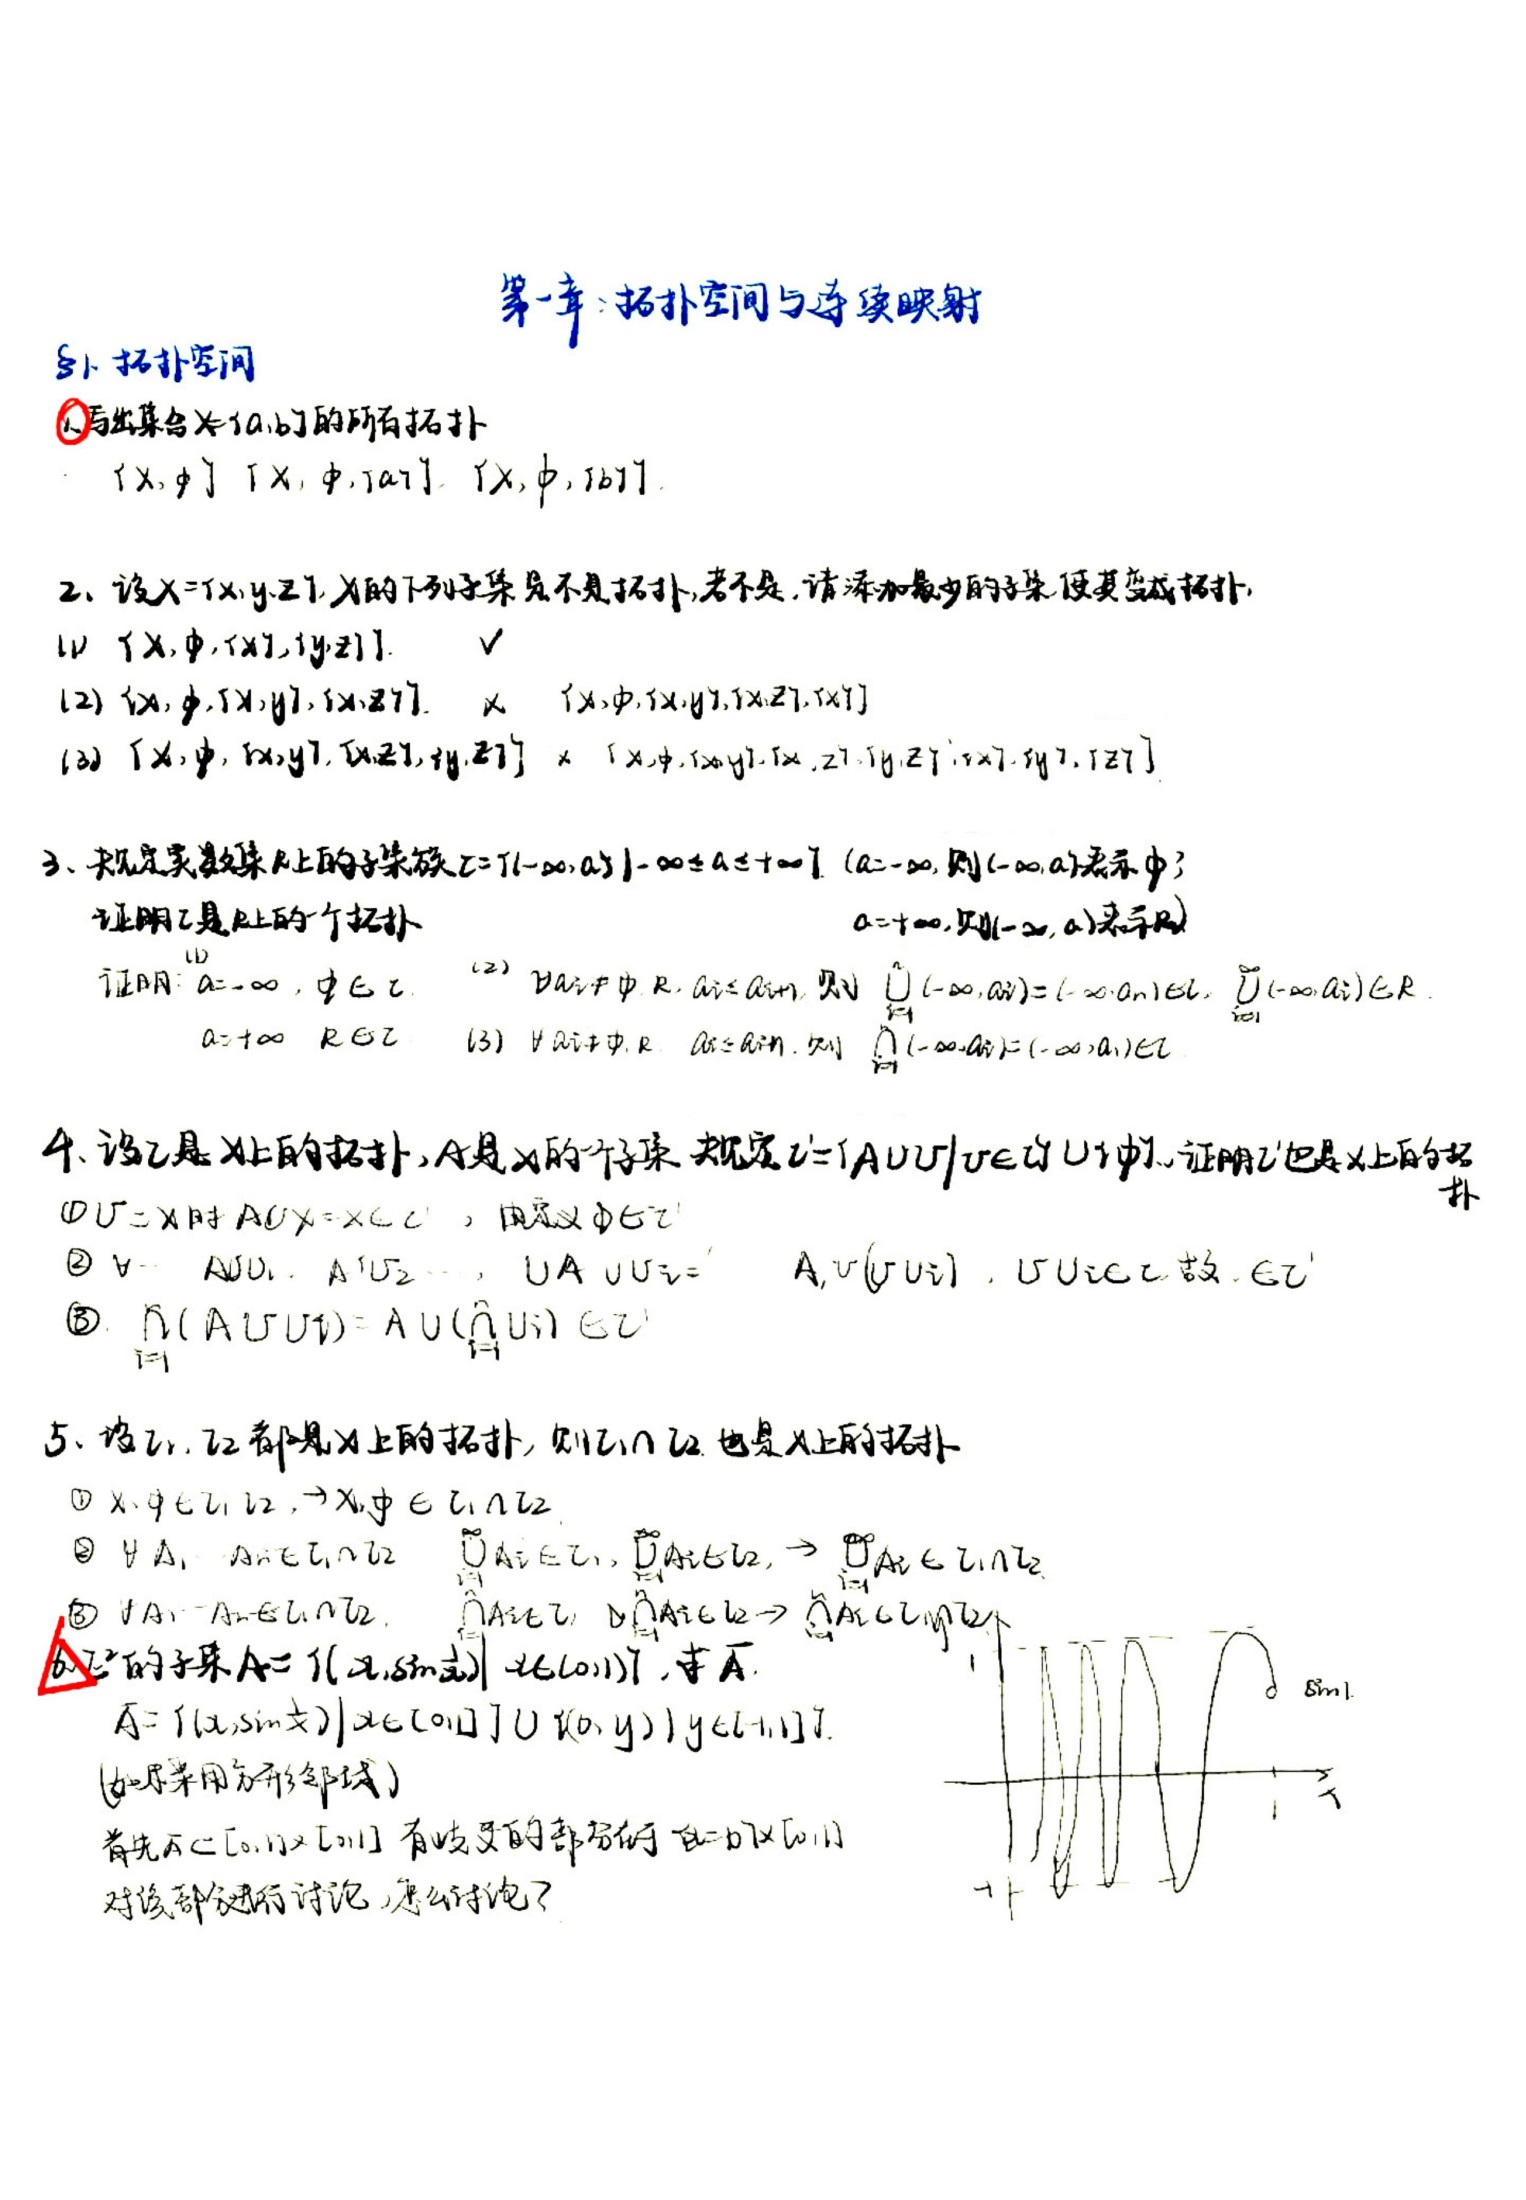 第一章:拓扑空间与连续映射
§1、拓扑空间
1、写出集合X={a,b}的所有拓扑
{X,φ} {X,φ,{a}}. {X,φ,{b}}.
2、设X={x,y,z}, X的下列子集是不是拓扑,若不是,请添加最少的子集使其变成拓扑,
(1) {X,φ,{x},{y,z}}. ✓
(2) {X,φ,{x,y},{x,z}}. × {X,φ,{x,y},{x,z},{x}}
(3) {X,φ,{x,y},{x,z},{y,z}} × {X,φ,{x,y},{x,z},{y,z},{x},{y},{z}}
3、规定实数集R上的子集族τ={(-∞,a)|-∞≤a≤+∞} (a=-∞,则(-∞,a)表示φ;
证明τ是R上的一个拓扑 a=+∞,则(-∞,a)表示R)
证明:(1) a=-∞, φ∈τ (2) ∀ai≠φ.R. ai≤ai+1, 则 ⋃ⁿᵢ₌₁(-∞,ai)=(-∞,an)∈τ, ⋃^∞ᵢ₌₁(-∞,ai)∈R.
a=+∞ R∈τ (3) ∀ai≠φ.R ai≤ai+1. 则 ⋂ⁿᵢ₌₁(-∞,ai)=(-∞,a1)∈τ
4、设τ是X上的拓扑,A是X的一个子集 规定τ'={A∪U|U∈τ}∪{φ}.证明τ'也是X上的拓扑
①U=X时 A∪X=X∈τ', 由定义φ∈τ'
② ∀… A∪U1. A∪U2 …, ∪A∪Ui= A∪(∪Ui), ∪Ui∈τ 故.∈τ'
③. ⋂ⁿᵢ₌₁(A∪Ui)=A∪(⋂ⁿᵢ₌₁Ui)∈τ'
5、设τ1,τ2都是X上的拓扑,则τ1∩τ2也是X上的拓扑
① X,φ∈τ1 τ2,→X,φ∈τ1∩τ2
② ∀A1…An∈τ1∩τ2 ⋃^∞ᵢ₌₁Ai∈τ1, ⋃^∞ᵢ₌₁Ai∈τ2, → ⋃^∞ᵢ₌₁Ai∈τ1∩τ2
③ ∀A1…An∈τ1∩τ2, ⋂ⁿᵢ₌₁Ai∈τ1 ⋂ⁿᵢ₌₁Ai∈τ2→ ⋂ⁿᵢ₌₁Ai∈τ1∩τ2
6、E²的子集A={(x,sin1/x)|x∈(0,1)},求Ā.
Ā={(x,sin1/x)|x∈(0,1]}∪{(0,y)|y∈[-1,1]}.
(如果采用方形邻域)
首先Ā⊂[0,1]×[0,1] 有歧义的部分在于{x=0}×[0,1]
对该部分进行讨论,怎么讨论?
y
1
sin1.
x
1
-1